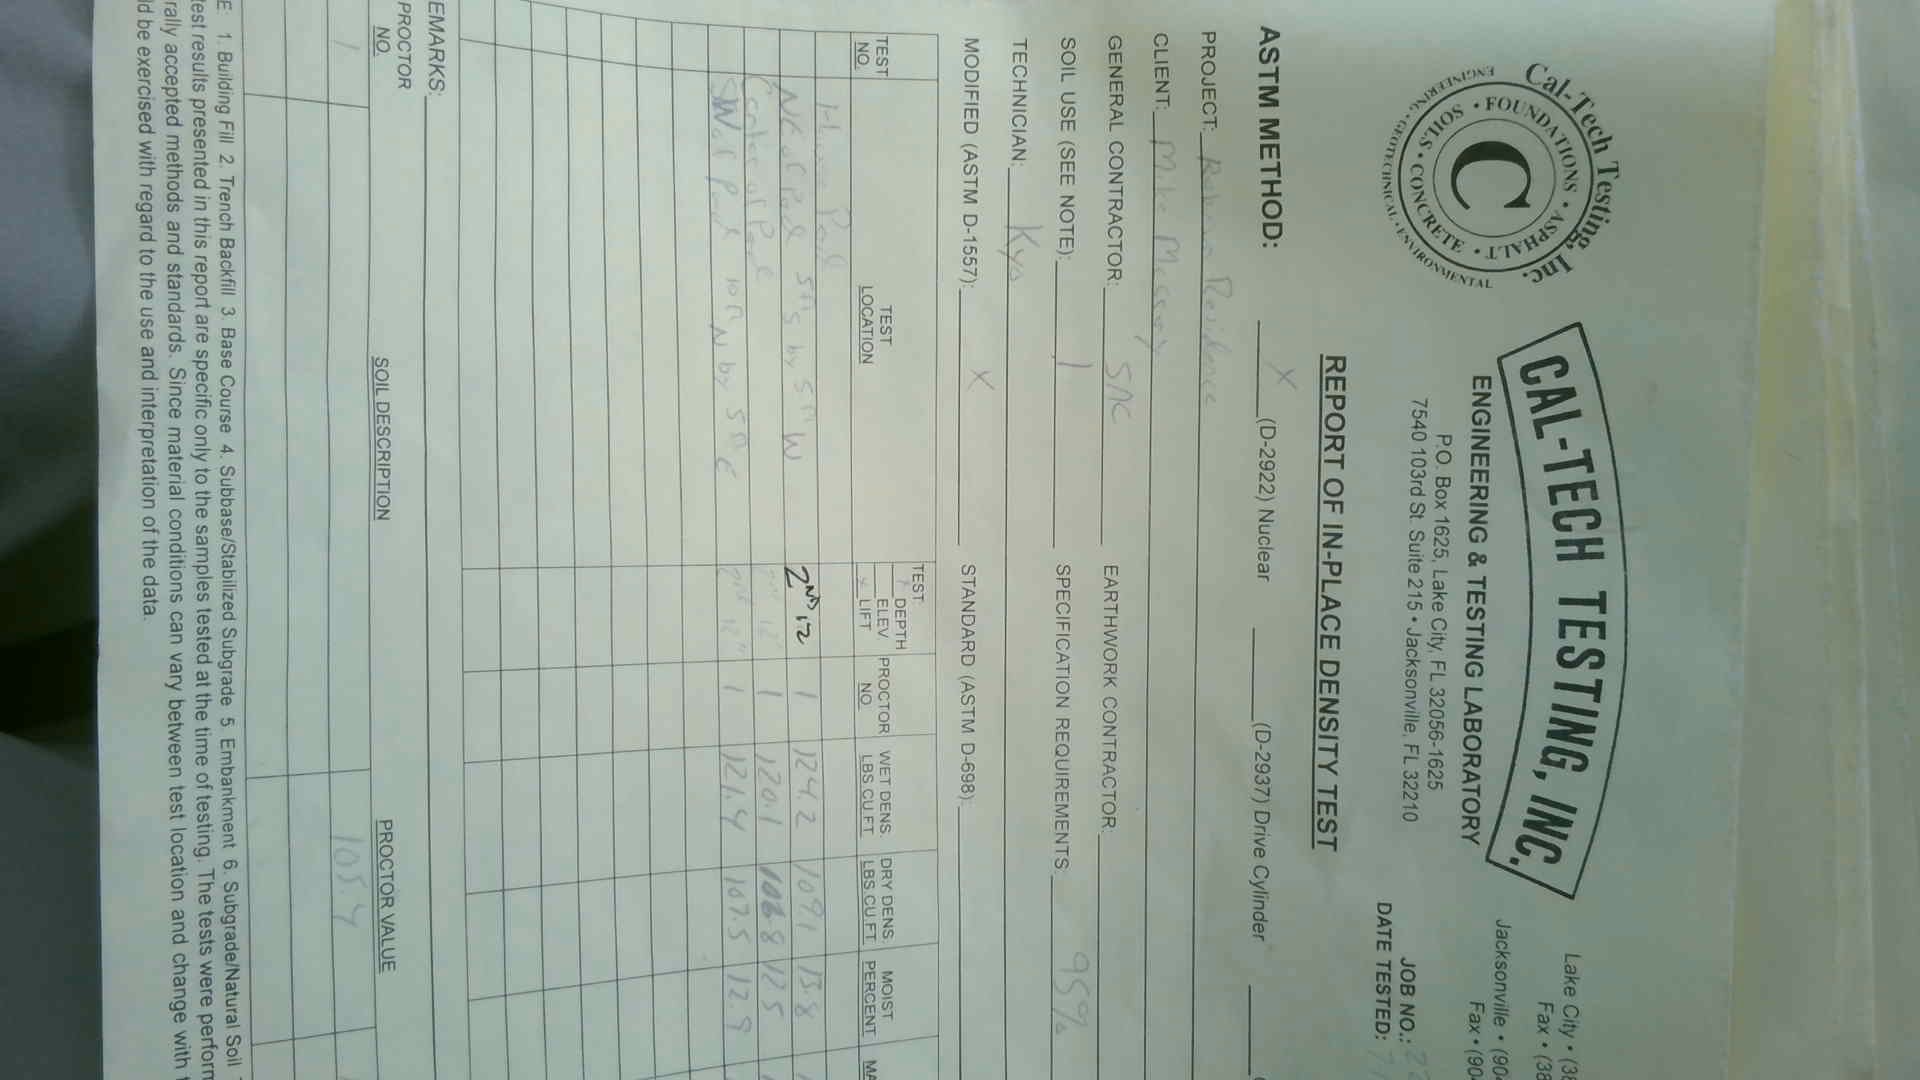 Cal-Tech Testing, Inc.
• FOUNDATIONS • ASPHALT • CONCRETE • SOILS
ENGINEERING • GEOTECHNICAL • ENVIRONMENTAL
C
CAL-TECH TESTING, INC.
ENGINEERING & TESTING LABORATORY
P.O. Box 1625, Lake City, FL 32056-1625
7540 103rd St. Suite 215 • Jacksonville, FL 32210
Lake City • (38
Fax • (38
Jacksonville • (904
Fax • (90
JOB NO.:
DATE TESTED:
REPORT OF IN-PLACE DENSITY TEST
ASTM METHOD: X (D-2922) Nuclear (D-2937) Drive Cylinder
PROJECT: Residence
CLIENT: Mike
GENERAL CONTRACTOR: EARTHWORK CONTRACTOR:
SOIL USE (SEE NOTE): 1 SPECIFICATION REQUIREMENTS: 95%
TECHNICIAN:
MODIFIED (ASTM D-1557): X STANDARD (ASTM D-698):
TEST NO. TEST LOCATION TEST DEPTH ELEV LIFT PROCTOR NO. WET DENS. LBS.CU.FT. DRY DENS. LBS.CU.FT. MOIST PERCENT
Pad
NE of Pad 5ft S by 5ft W 2ND 12 1 124.2 109.1 13.8
Center of Pad 12" 1 120.1 12.5
SW of Pad 10ft N by 5ft E 12" 1 121.4 107.5 12.9
REMARKS:
PROCTOR NO. SOIL DESCRIPTION PROCTOR VALUE
1 105.4
E 1. Building Fill 2. Trench Backfill 3. Base Course 4. Subbase/Stabilized Subgrade 5. Embankment 6. Subgrade/Natural Soil
test results presented in this report are specific only to the samples tested at the time of testing. The tests were perform
rally accepted methods and standards. Since material conditions can vary between test location and change with
ld be exercised with regard to the use and interpretation of the data.